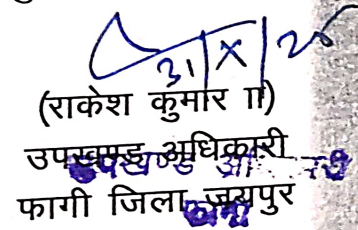 31/X/25
(राकेश कुमार II)
उपखण्ड अधिकारी
फागी जिला जयपुर